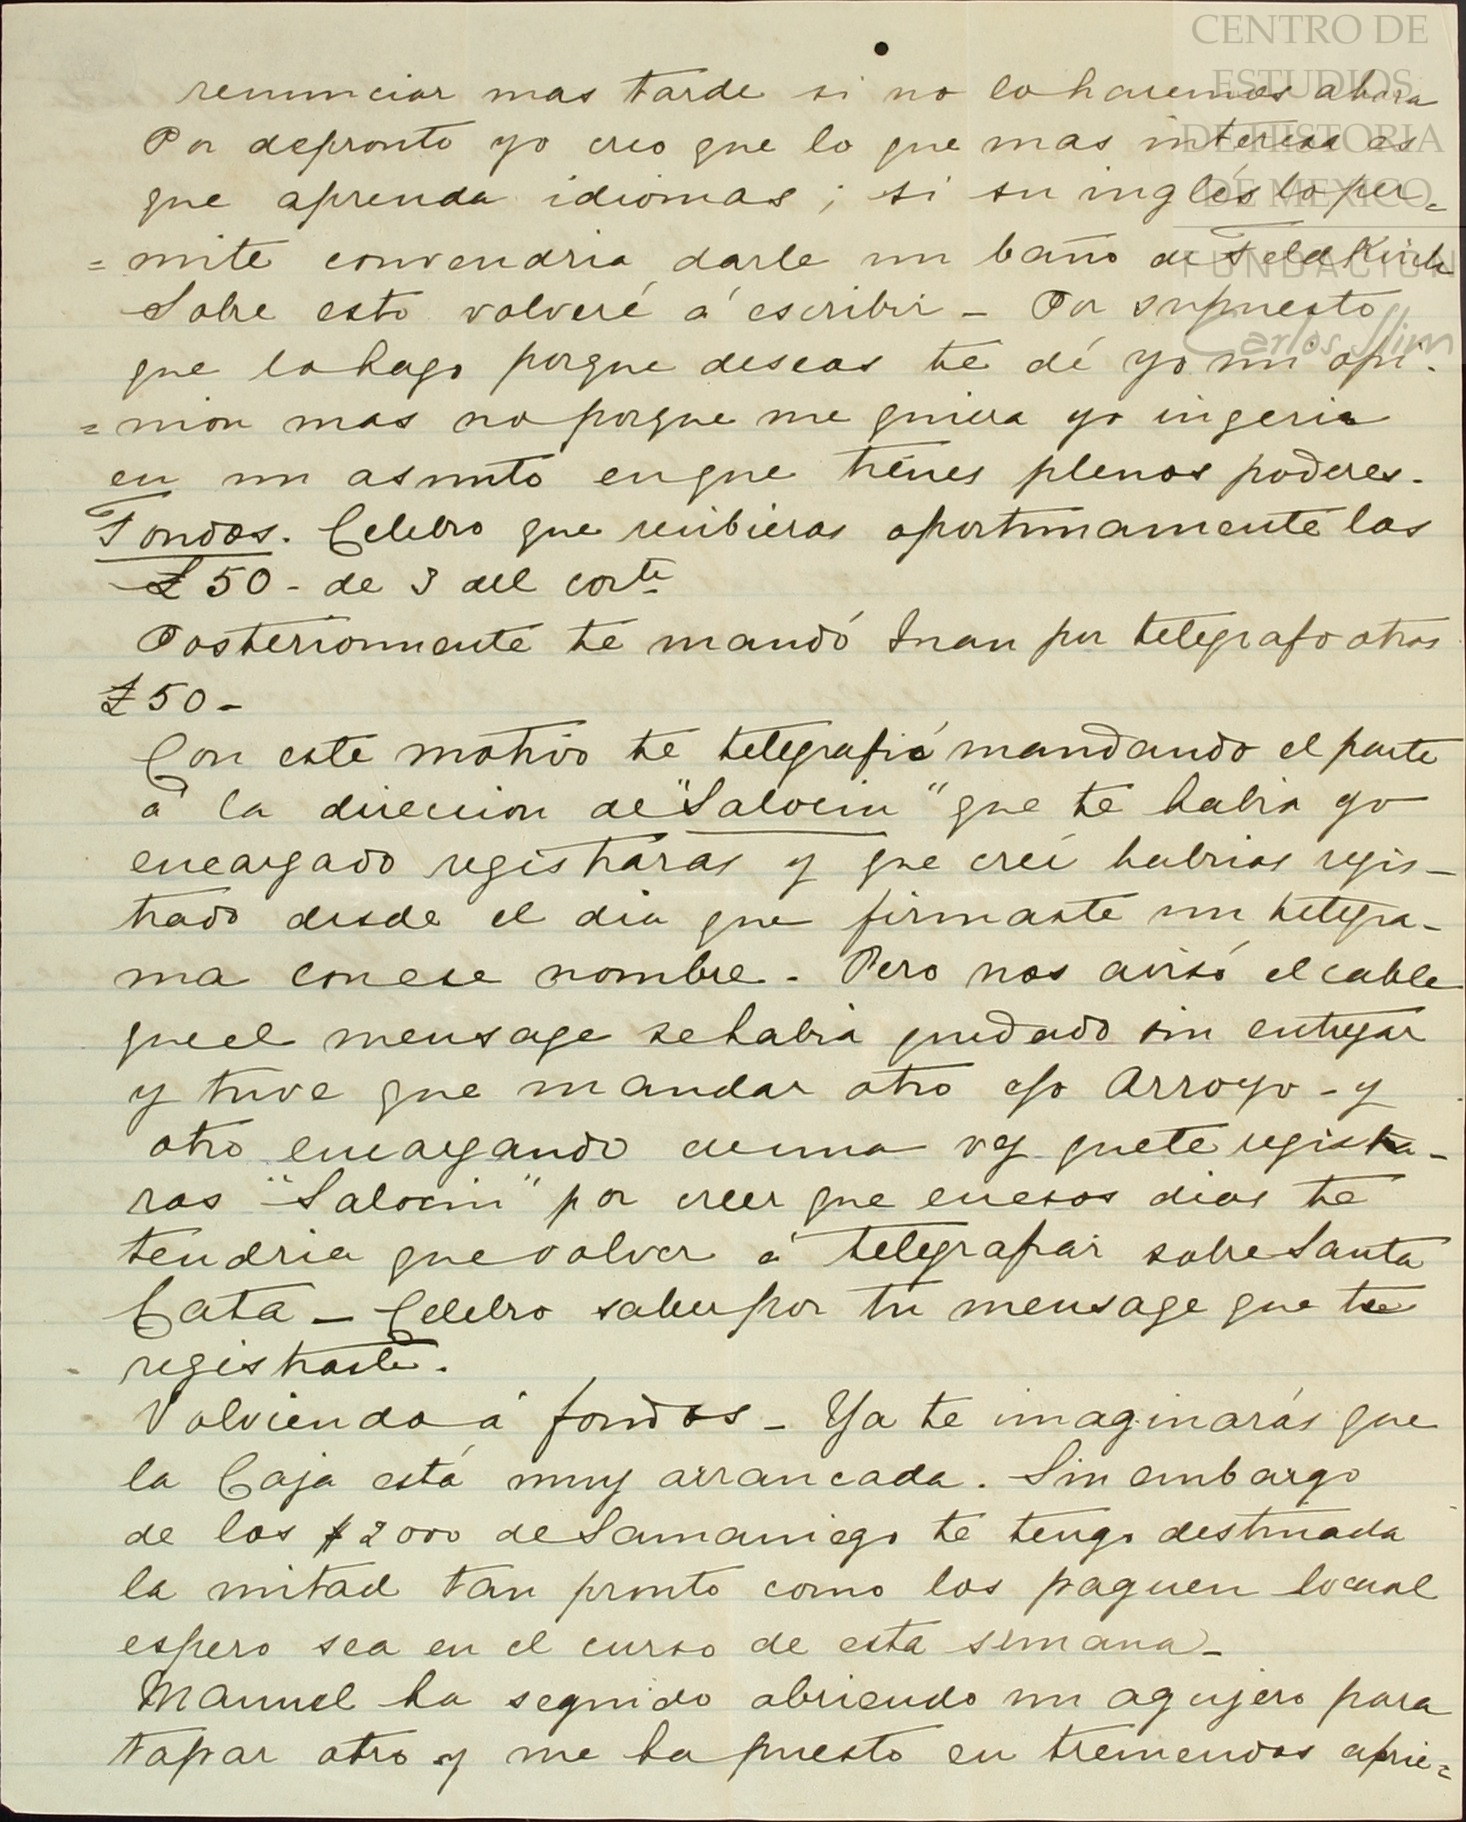 CENTRO DE
ESTUDIOS
DE HISTORIA
DE MEXICO
FUNDACION
Carlos Slim
renunciar mas tarde si no lo hacemos ahora
Por depronto yo creo que lo que mas interesa es
que aprenda idiomas; si su inglés lo per=
=mite convendria darle un baño de Feldkirch
Sobre esto volveré á escribir - Por supuesto
que lo hago porque deseas te dé yo mi opi.
=nion mas no porque me quiera yo ingerir
en un asunto en que tienes plenos poderes.
Fondos. Celebro que recibieras oportunamente las
£50- de 3 del corte
Posteriormente te mandó Juan por telegrafo otras
£50-
Con este motivo te telegrafié mandando el parte
á la direccion de "Salocin" que te habia yo
encargado registraras y que creí habrias regis-
trado desde el dia que firmaste un telegra-
ma con ese nombre. Pero nos avisó el cable
que el mensage se habia quedado sin entregar
y tuve que mandar otro c/o Arroyo - y
otro encargando de una vez que te registra-
ras "Salocin" por creer que en esos dias te
tendria que volver á telegrafiar sobre Santa
Cata - Celebro saber por tu mensage que te
registraste.
Volviendo á fondos - Ya te imaginarás que
la Caja está muy arrancada. Sin embargo
de los $2000 de Samaniego te tengo destinada
la mitad tan pronto como los paguen lo cual
espero sea en el curso de esta semana -
Manuel ha seguido abriendo un agujero para
tapar otro y me ha puesto en tremendos aprie=